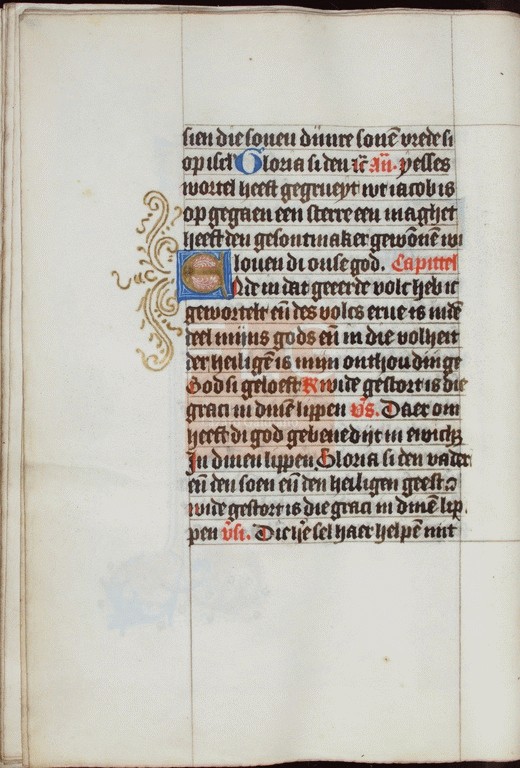 sien die soneu dijnre sonē vrede si
op isrl Gloria si den ꝛc̄ Añ. yesses
wortel heeft gegrueyt wt iacob is
op gegaen een sterre een maghet
heeft den gesontmaker gewōnē wi
louen di onse god. Capittel
Ende in dat geeerde volc heb ic
gewortelt eñ des volcs erue is in de
deel mijns gods eñ in die volheit
der heiligē is mijn onthoudinge
God si geloeft R wide gestort is die
graci in dinē lippen v̄s. Daer om
heeft di god gebenedijt in ewich;
In dinen lippen Gloria si den vader
eñ den soen eñ den heiligen geest
wide gestort is die graci in dinē lip
pen v̄si. Die h̄e sel haer helpē mit